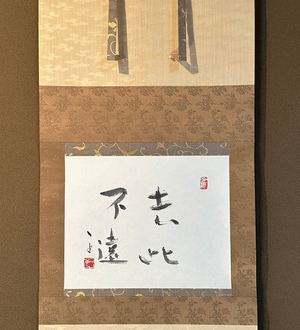 去此
不遠